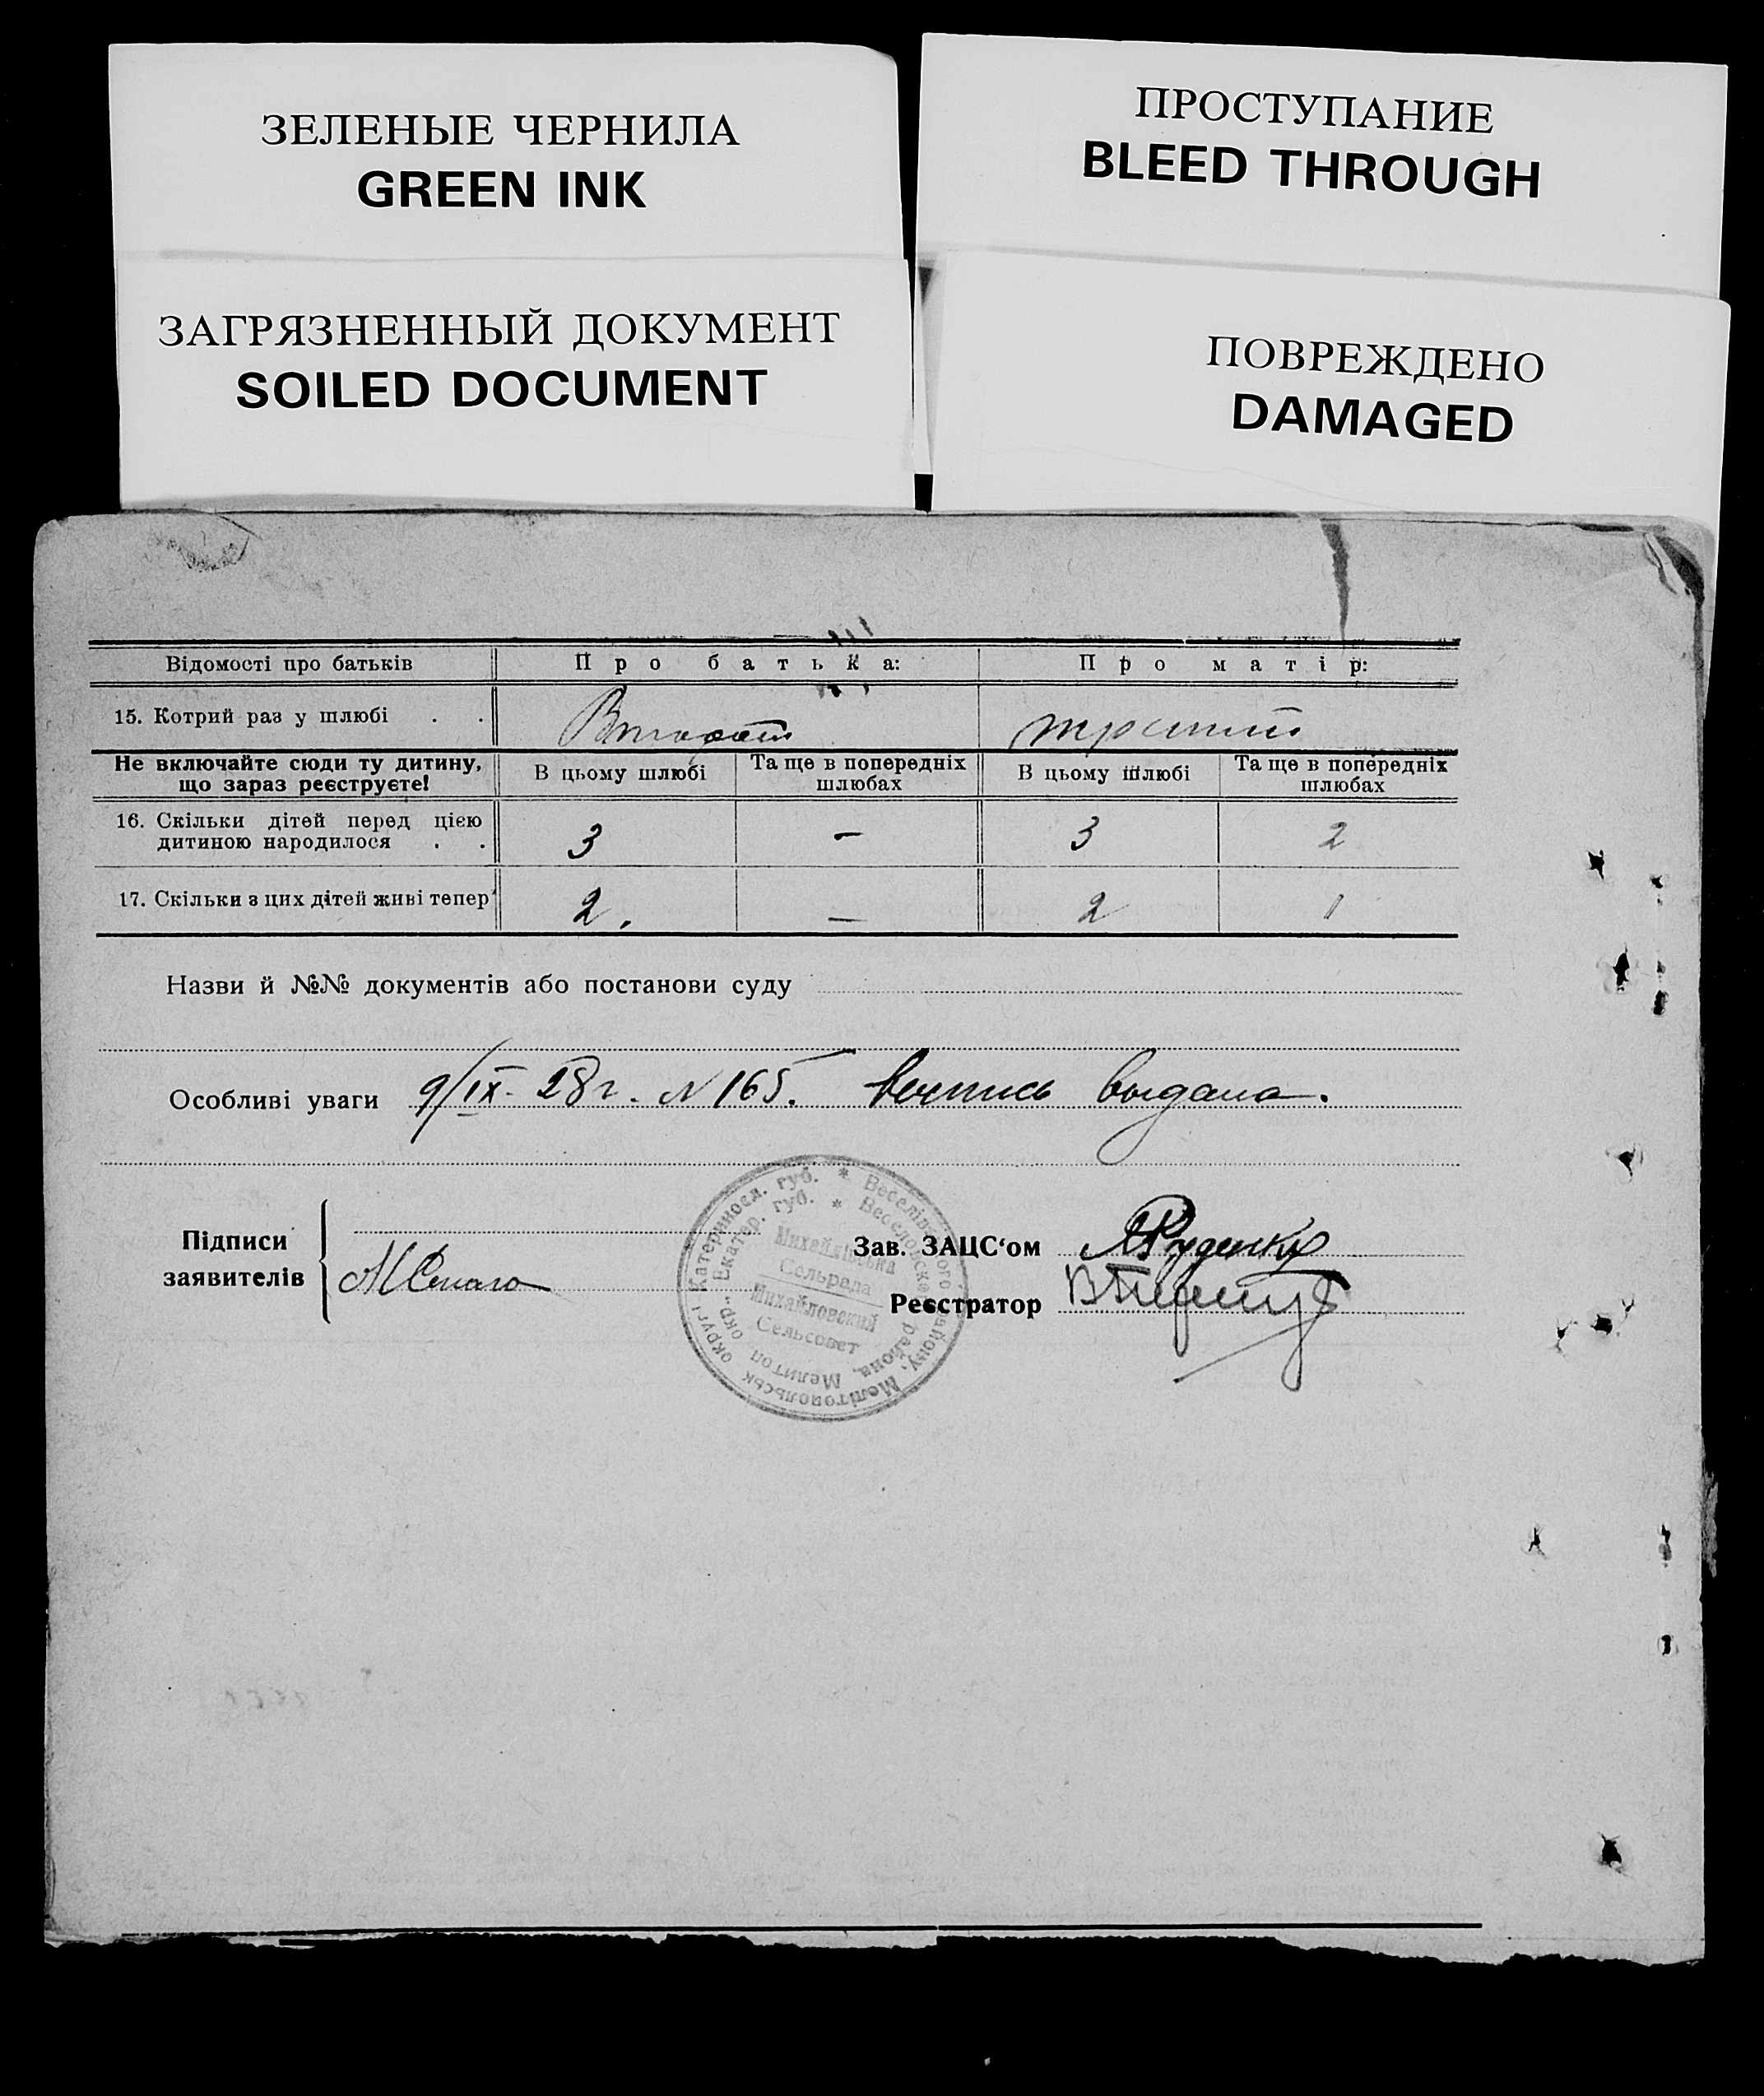 ЗЕЛЕНЫЕ ЧЕРНИЛА
GREEN INK
ПРОСТУПАНИЕ
BLEED THROUGH
ЗАГРЯЗНЕННЫЙ ДОКУМЕНТ
SOILED DOCUMENT
ПОВРЕЖДЕНО
DAMAGED
Відомості про батьків Про батька: Про матір:
15. Котрий раз у шлюбі . .
Не включайте сюди ту дитину, що зараз реєструєте! В цьому шлюбі Та ще в попередніх шлюбах В цьому шлюбі Та ще в попередніх шлюбах
16. Скільки дітей перед цією
дитиною народилося . . 3 – 3 2
17. Скільки з цих дітей живі тепер 2. – 2 1
Назви й №№ документів або постанови суду
Особливі уваги 9/IX-28г. N 165. выдана.
Підписи
заявителів
Катериносл. губ. * Веселівського району, Мелітопольськ округі
Екатер. губ. * Веселовске района, Мелитоп окр.
Михайлівська
Сельрада
Михайловский
Сельсовет
Зав. ЗАЦС‘ом Руденко
Реєстратор